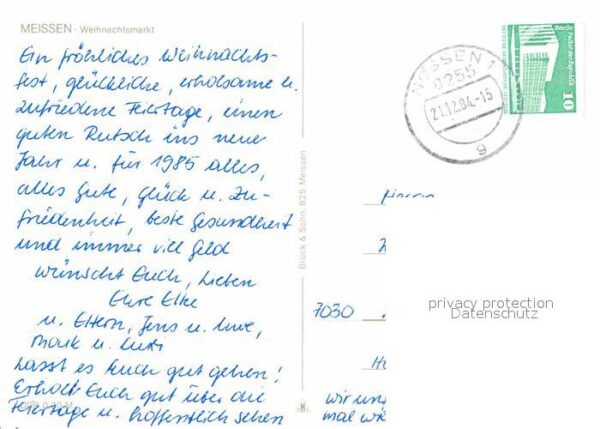 MEISSEN · Weihnachtsmarkt
Ein fröhliches Weihnachts-
fest, glückliche, erholsame u.
zufriedene Feiertage, einen
guten Rutsch ins neue
Jahr u. für 1985 alles,
alles Gute, Glück u. Zu-
friedenheit, beste Gesundheit
und immer viel Geld
wünscht Euch, Lieben
Eure Elke
u. Eltern, Jens u. Uwe,
Maik u.
Lasst es Euch gut gehen!
Erholt Euch gut über die
Feiertage u. hoffentlich sehen
wir uns
mal wie
Brück & Sohn, 825 Meissen
MEISSEN 1
8255
21.12.84.-15
g
Berlin, Palast der Republik
10
7030
privacy protection
Datenschutz